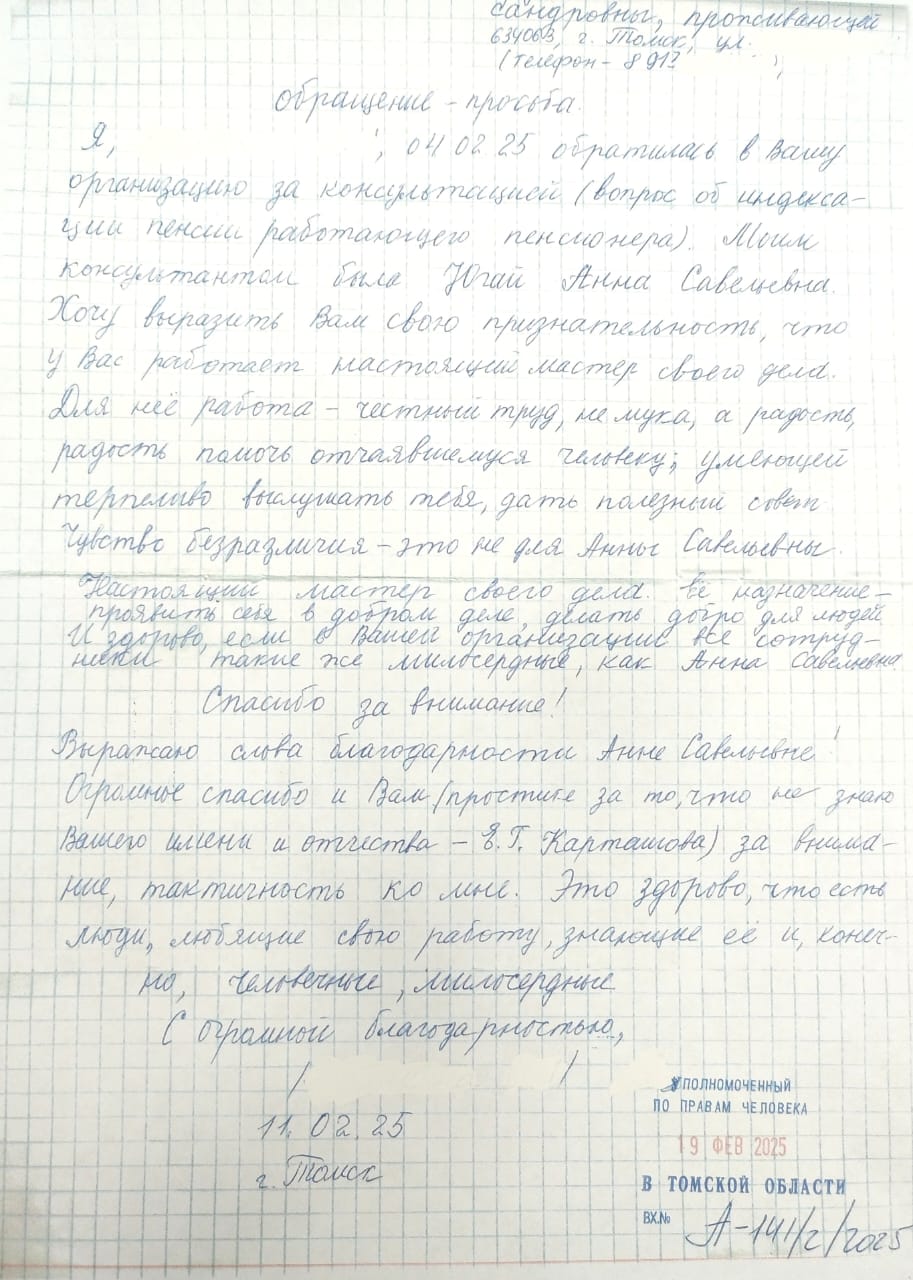 сандровны, проживающей
634063, г. Томск, ул.
(телефон - 8 913
обращение - просьба.
Я, , 04 02 25 обратилась в Вашу
организацию за консультацией (вопрос об индекса-
ции пенсии работающего пенсионера). Моим
консультантом была Югай Анна Савельевна.
Хочу выразить Вам свою признательность, что
у Вас работает настоящий мастер своего дела.
Для неё работа - честный труд, не мука, а радость,
радость помочь отчаявшемуся человеку; умеющей
терпеливо выслушать тебя, дать полезный совет.
Чувство безразличия - это не для Анны Савельевны.
Настоящий мастер своего дела. Её назначение -
проявить себя в добром деле, делать добро для людей
И здорово, если в Вашей организации все сотруд-
ники такие же милосердные, как Анна Савельевна.
Спасибо за внимание!
Выражаю слова благодарности Анне Савельевне!
Огромное спасибо и Вам (простите за то, что не знаю
Вашего имени и отчества - Е.Г. Карташова) за внима-
ние, тактичность ко мне. Это здорово, что есть
люди, любящие свою работу, знающие её и, конеч-
но, человечные, милосердные
С огромной благодарностью,
/ /
11. 02. 25
г. Томск
УПОЛНОМОЧЕННЫЙ
ПО ПРАВАМ ЧЕЛОВЕКА
19 ФЕВ 2025
В ТОМСКОЙ ОБЛАСТИ
ВХ.№ А-141/2/2025